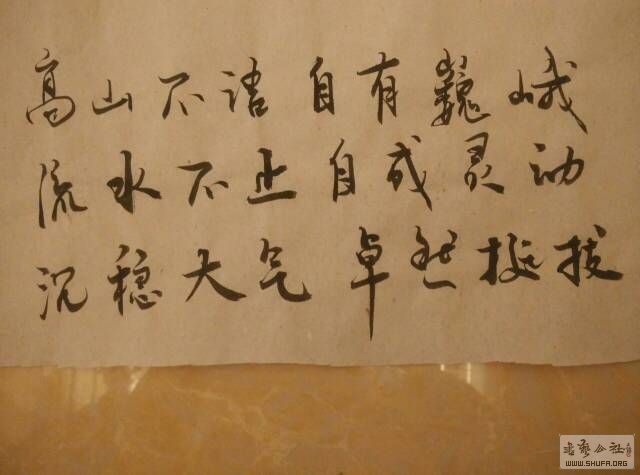 高山不语 自有巍峨
流水不止 自成灵动
沉稳大气 卓然挺拔
书艺公社
WWW.SHUFA.ORG